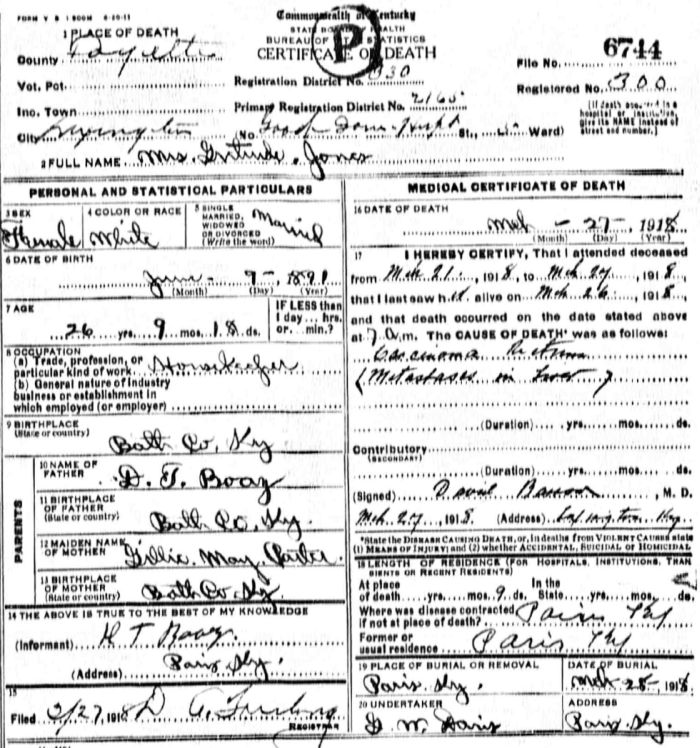 FORM V S 1 500M 6-20-11
Commonwealth of Kentucky
STATE BOARD OF HEALTH
BUREAU OF STATISTICS
CERTIFICATE OF DEATH
1 PLACE OF DEATH
County Fayette
Vot. Pct.
Inc. Town
City Lexington
Registration District No. 330
Primary Registration District No. 2165
(No Good Sam. Hospt St., Ward)
File No. 6744
Registered No. 300
[If death occurred in a hospital or institution, give its NAME instead of street and number.]
2 FULL NAME Mrs. Gertrude Jones
PERSONAL AND STATISTICAL PARTICULARS
3 SEX Female
4 COLOR OR RACE White
5 SINGLE MARRIED, WIDOWED OR DIVORCED (Write the word) Married
6 DATE OF BIRTH
June - 9 - 1891
(Month) (Day) (Year)
7 AGE
26 yrs. 9 mos. 18 ds.
IF LESS than 1 day ... hrs. or ... min.?
8 OCCUPATION
(a) Trade, profession, or particular kind of work Housekeeper
(b) General nature of industry business or establishment in which employed (or employer)
9 BIRTHPLACE (State or country)
Bath Co, Ky
PARENTS
10 NAME OF FATHER D. T. Boaz
11 BIRTHPLACE OF FATHER (State or country) Bath Co, Ky.
12 MAIDEN NAME OF MOTHER May
13 BIRTHPLACE OF MOTHER (State or country) Bath Co, Ky.
14 THE ABOVE IS TRUE TO THE BEST OF MY KNOWLEDGE
(Informant) T Boaz
(Address) Paris Ky.
15
Filed 3/27, 1918
REGISTRAR
MEDICAL CERTIFICATE OF DEATH
16 DATE OF DEATH
Mch - 27 - 1918
(Month) (Day) (Year)
17 I HEREBY CERTIFY, That I attended deceased
from Mch 21, 1918, to Mch 27, 1918
that I last saw her alive on Mch 26, 1918
and that death occurred on the date stated above
at 7 a.m. The CAUSE OF DEATH* was as follows:
Carcinoma Rectum
(Metastases in Liver)
(Duration) yrs. mos. ds.
Contributory (SECONDARY)
(Duration) yrs. mos. ds.
(Signed) David Barrow, M. D.
Mch 27, 1918 (Address) Lexington Ky.
*State the DISEASE CAUSING DEATH, or, in deaths from VIOLENT CAUSES state (1) MEANS OF INJURY; and (2) whether ACCIDENTAL, SUICIDAL OR HOMICIDAL
18 LENGTH OF RESIDENCE (FOR HOSPITALS, INSTITUTIONS, TRANSIENTS OR RECENT RESIDENTS)
At place of death yrs. mos. 9 ds. In the State yrs. mos. ds.
Where was disease contracted if not at place of death? Paris Ky
Former or usual residence Paris Ky
19 PLACE OF BURIAL OR REMOVAL Paris Ky.
DATE OF BURIAL Mch 28, 1918
20 UNDERTAKER G. W. Davis
ADDRESS Paris Ky.